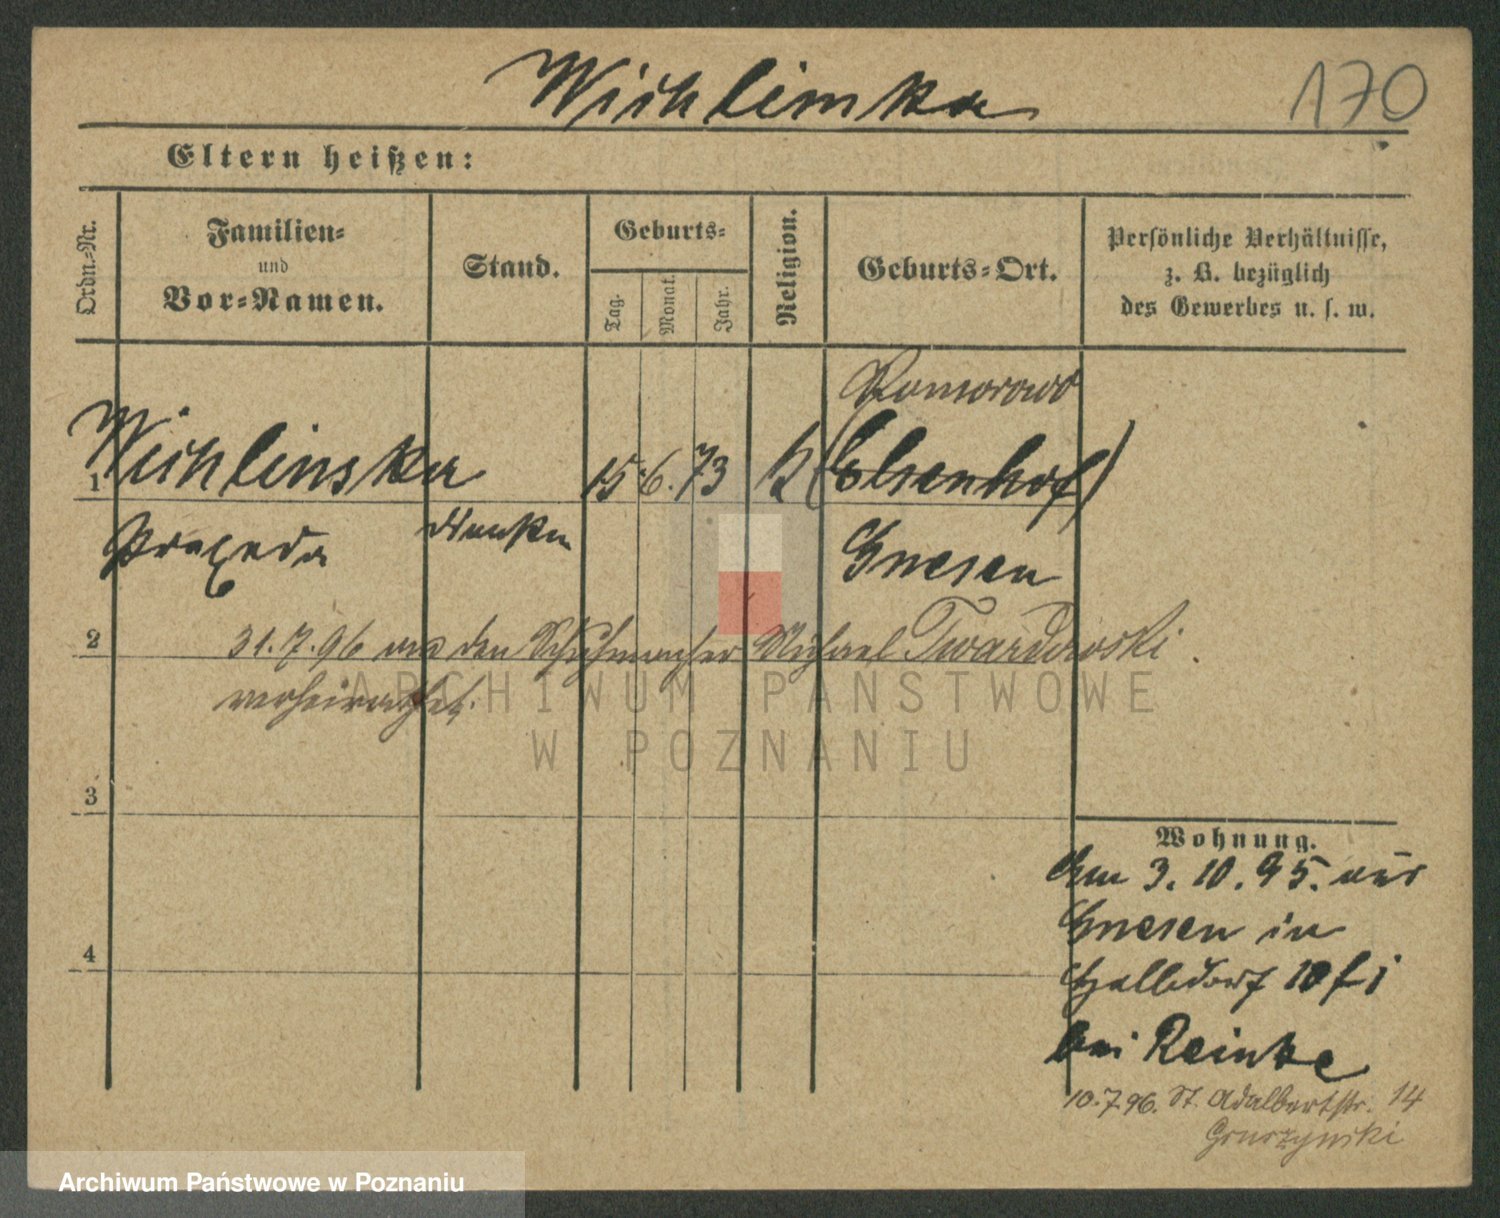 Wichlinska
170
Eltern heißen:
Ordn.-Nr.
Familien-
und
Vor-Namen.
Stand.
Geburts-
Tag.
Monat.
Jahr.
Religion.
Geburts-Ort.
Persönliche Verhältnisse,
z. B. bezüglich
des Gewerbes u. s. w.
Pomorowo
1 Wichlinska 15. 6. 73 k (Elsenhof)
Praxeda Gnesen
2
31.7.96 den Schuhmacher Michael Twardowski.
verheirathet.
ARCHIWUM PAŃSTWOWE
W POZNANIU
3
4
Wohnung.
Am 3. 10. 95. aus
Gnesen in
Halbdorf 10
bei Reinke
10.7.96. St. Adalbertstr. 14
Gruszynski
Archiwum Państwowe w Poznaniu